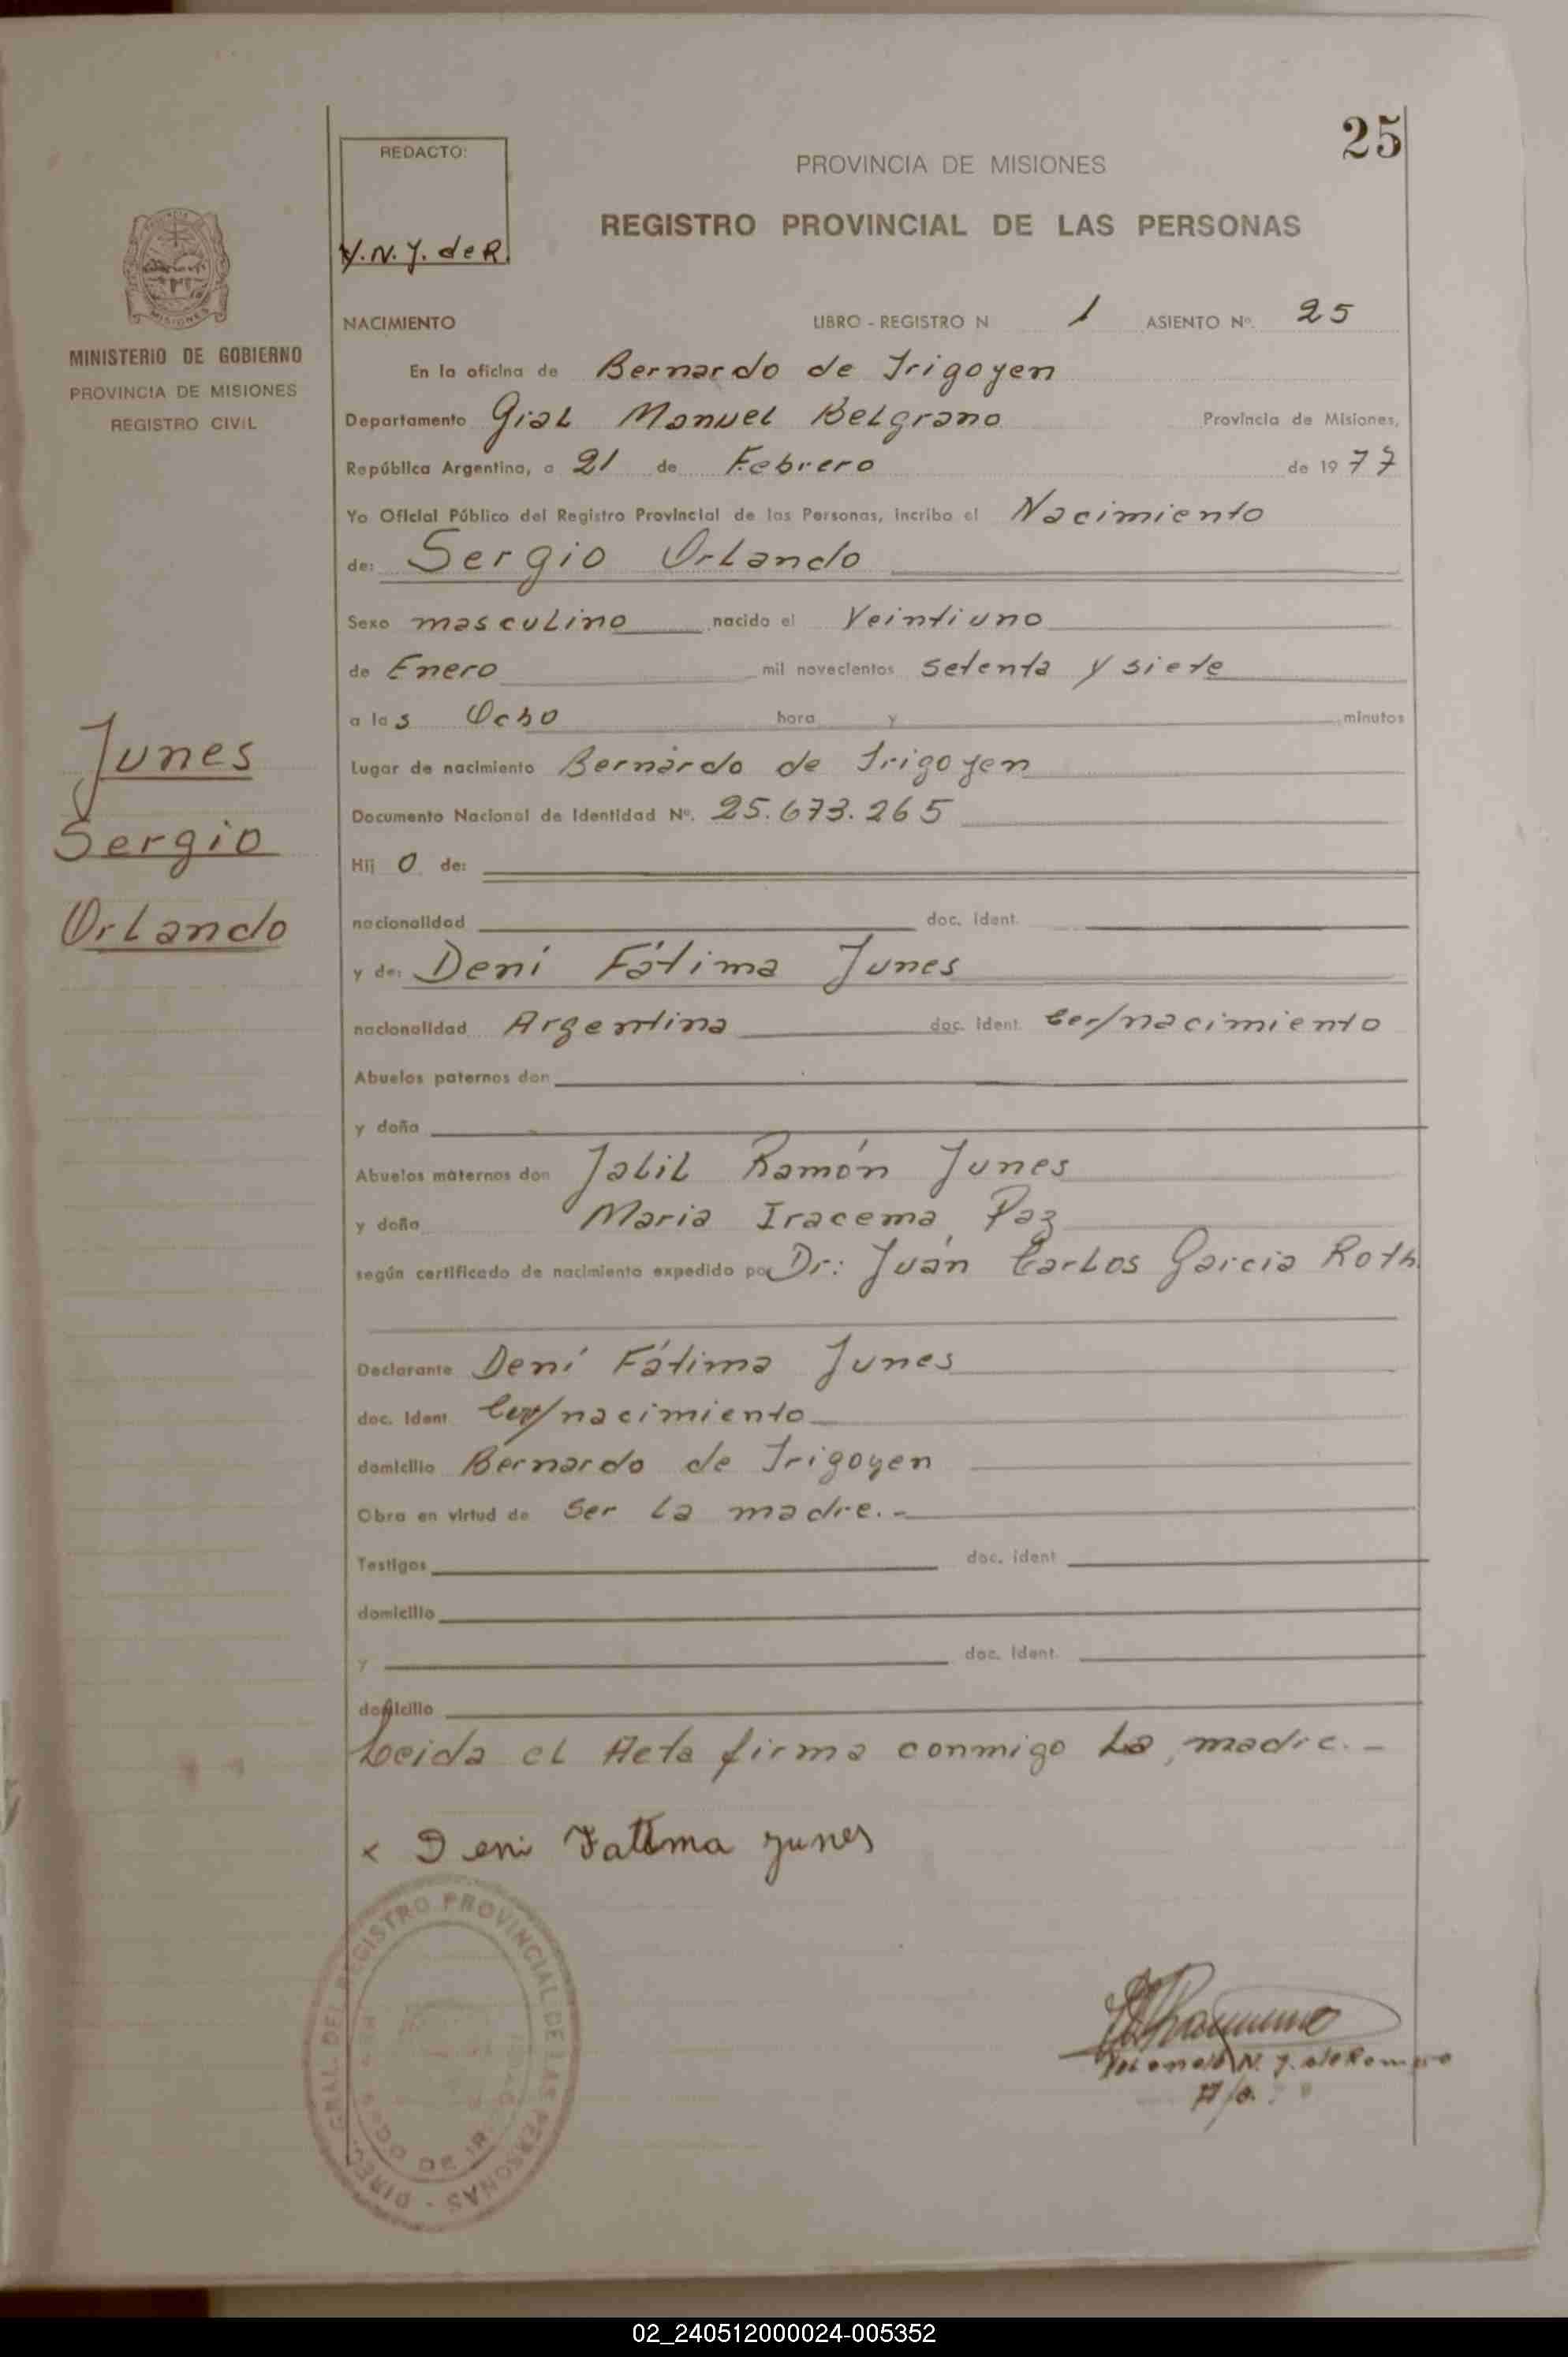 25
REDACTO:
Y.N.J. de R.
PROVINCIA DE MISIONES
REGISTRO PROVINCIAL DE LAS PERSONAS
MISIONES
MINISTERIO DE GOBIERNO
PROVINCIA DE MISIONES
REGISTRO CIVIL
NACIMIENTO LIBRO - REGISTRO N 1 ASIENTO Nº. 25
En la oficina de Bernardo de Irigoyen
Departamento Gral Manuel Belgrano Provincia de Misiones,
República Argentina, a 21 de Febrero de 19 77
Yo Oficial Público del Registro Provincial de las Personas, incribo el Nacimiento
de: Sergio Orlando
Sexo masculino nacido el Veintiuno
de Enero mil novecientos setenta y siete
a las Ocho hora y minutos
Lugar de nacimiento Bernardo de Irigoyen
Documento Nacional de Identidad Nº. 25.673.265
Hij o de:
nacionalidad doc. ident.
y de: Dení Fátima Junes
nacionalidad Argentina doc. ident. Cer/nacimiento
Abuelos paternos don
y doña
Abuelos maternos don Jalil Ramón Junes
y doña Maria Iracema Paz
según certificado de nacimiento expedido por Dr: Juán Carlos Garcia Roth
Declarante Dení Fátima Junes
doc. ident Cer/nacimiento
domicilio Bernardo de Irigoyen
Obra en virtud de ser la madre.-
Testigos doc. ident
domicilio
y doc. ident.
domicilio
Leida el Acta firma conmigo la madre.-
Junes
Sergio
Orlando
x Deni Fatima Junes
DIREC. GRAL. DEL REGISTRO PROVINCIAL DE LAS PERSONAS -
N. J. de Romero
02_240512000024-005352